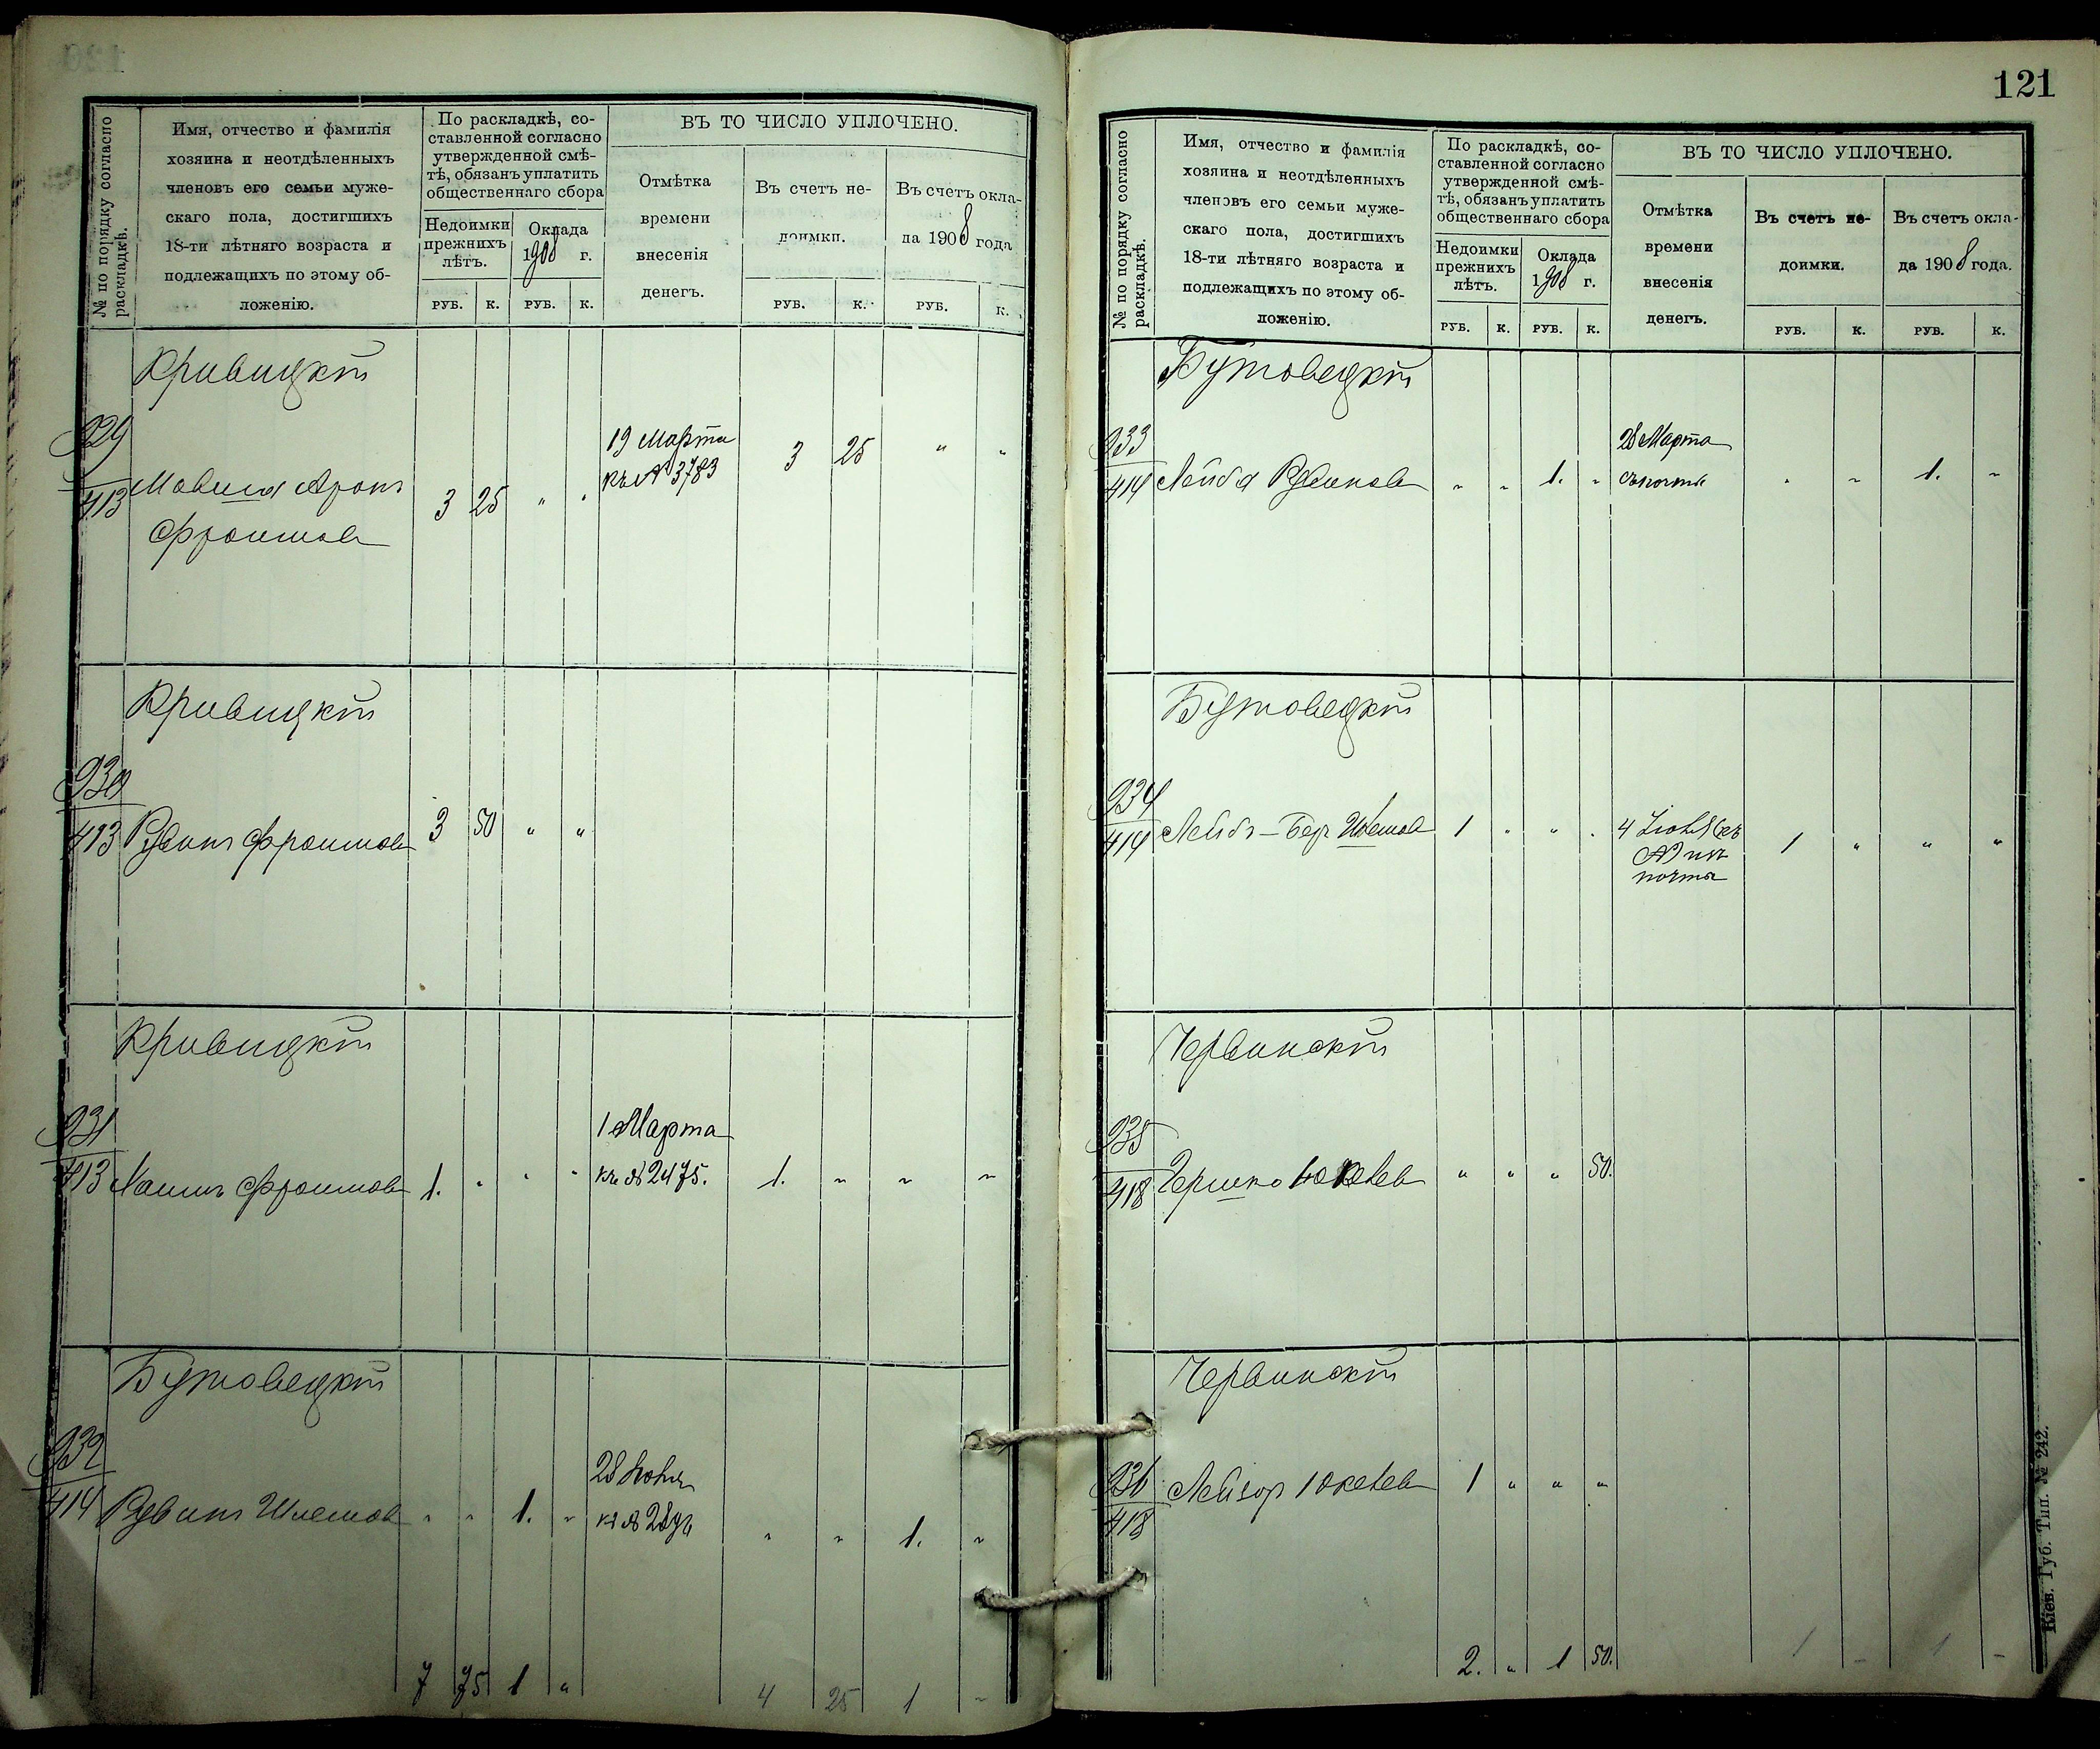 № по порядку согласно раскладкѣ.
Имя, отчество и фамилія
хозяина и неотдѣленныхъ
членовъ его семьи муже-
скаго пола, достигшихъ
18-ти лѣтняго возраста и
подлежащихъ по этому об-
ложенію.
По раскладкѣ, со-
ставленной согласно
утвержденной смѣ-
тѣ, обязанъ уплатить
общественнаго сбора
Недоимки прежнихъ лѣтъ.
Оклада 1908 г.
РУБ. К. РУБ. К.
ВЪ ТО ЧИСЛО УПЛОЧЕНО.
Отмѣтка
времени
внесенія
денегъ.
Въ счетъ не-
доимки.
Въ счетъ окла-
да 1908 года
РУБ. К. РУБ. К.
Кривицкій
929
413 Мовша Аронъ 3 25 " "
Фроимов
19 Марта
къ № 3783
3 25 " "
Кривицкій
930
413 Рувинъ Фроимов 3 50 " "
Кривицкій
931
413 Хаимъ Фроимов 1. " " "
1 Марта
къ № 2475.
1. " " "
Бутовецкій
932
414 Рувинъ Шлемов " " 1. "
28
" " 1. "
7 75 1 "
4 25 1 "
121
№ по порядку согласно раскладкѣ.
Имя, отчество и фамилія
хозяина и неотдѣленныхъ
членовъ его семьи муже-
скаго пола, достигшихъ
18-ти лѣтняго возраста и
подлежащихъ по этому об-
ложенію.
По раскладкѣ, со-
ставленной согласно
утвержденной смѣ-
тѣ, обязанъ уплатить
общественнаго сбора
Недоимки прежнихъ лѣтъ.
Оклада 1908 г.
РУБ. К. РУБ. К.
ВЪ ТО ЧИСЛО УПЛОЧЕНО.
Отмѣтка
времени
внесенія
денегъ.
Въ счетъ не-
доимки.
Въ счетъ окла-
да 1908 года.
РУБ. К. РУБ. К.
Бутовецкій
933
414 Лейба Рувинов " " 1. "
28 Марта
съ почты
" " 1. "
Бутовецкій
934
414 Лейбъ-Беръ Шлемов 1 " " "
4
почты
1 " " "
Червинскій
935
418 Гершко " " " 50.
Червинскій
936
418 Лейзор 1 " " "
2. " 1 50.
1 - 1 -
Кіев. Губ. Тип. № 242.